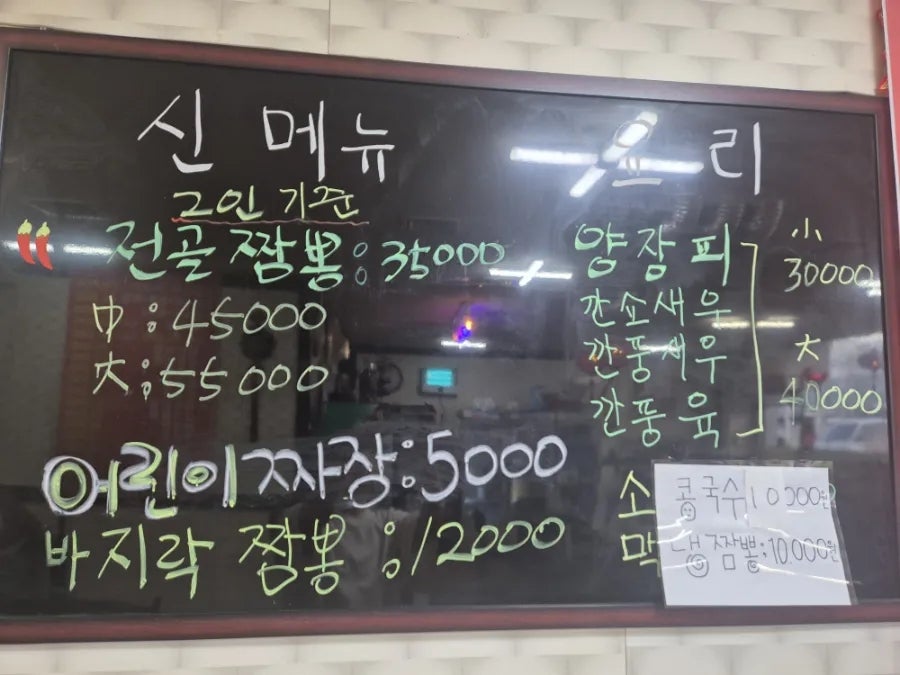 신 메뉴
2인 기준
전골 짬뽕: 35000
中: 45000
大: 55000
어린이 짜장: 5000
바지락 짬뽕: 12000
요리
양장피
깐쇼새우
깐풍새우
깐풍육
小
30000
大
40000
소
맥
콩국수 10000원
냉짬뽕: 10.000원